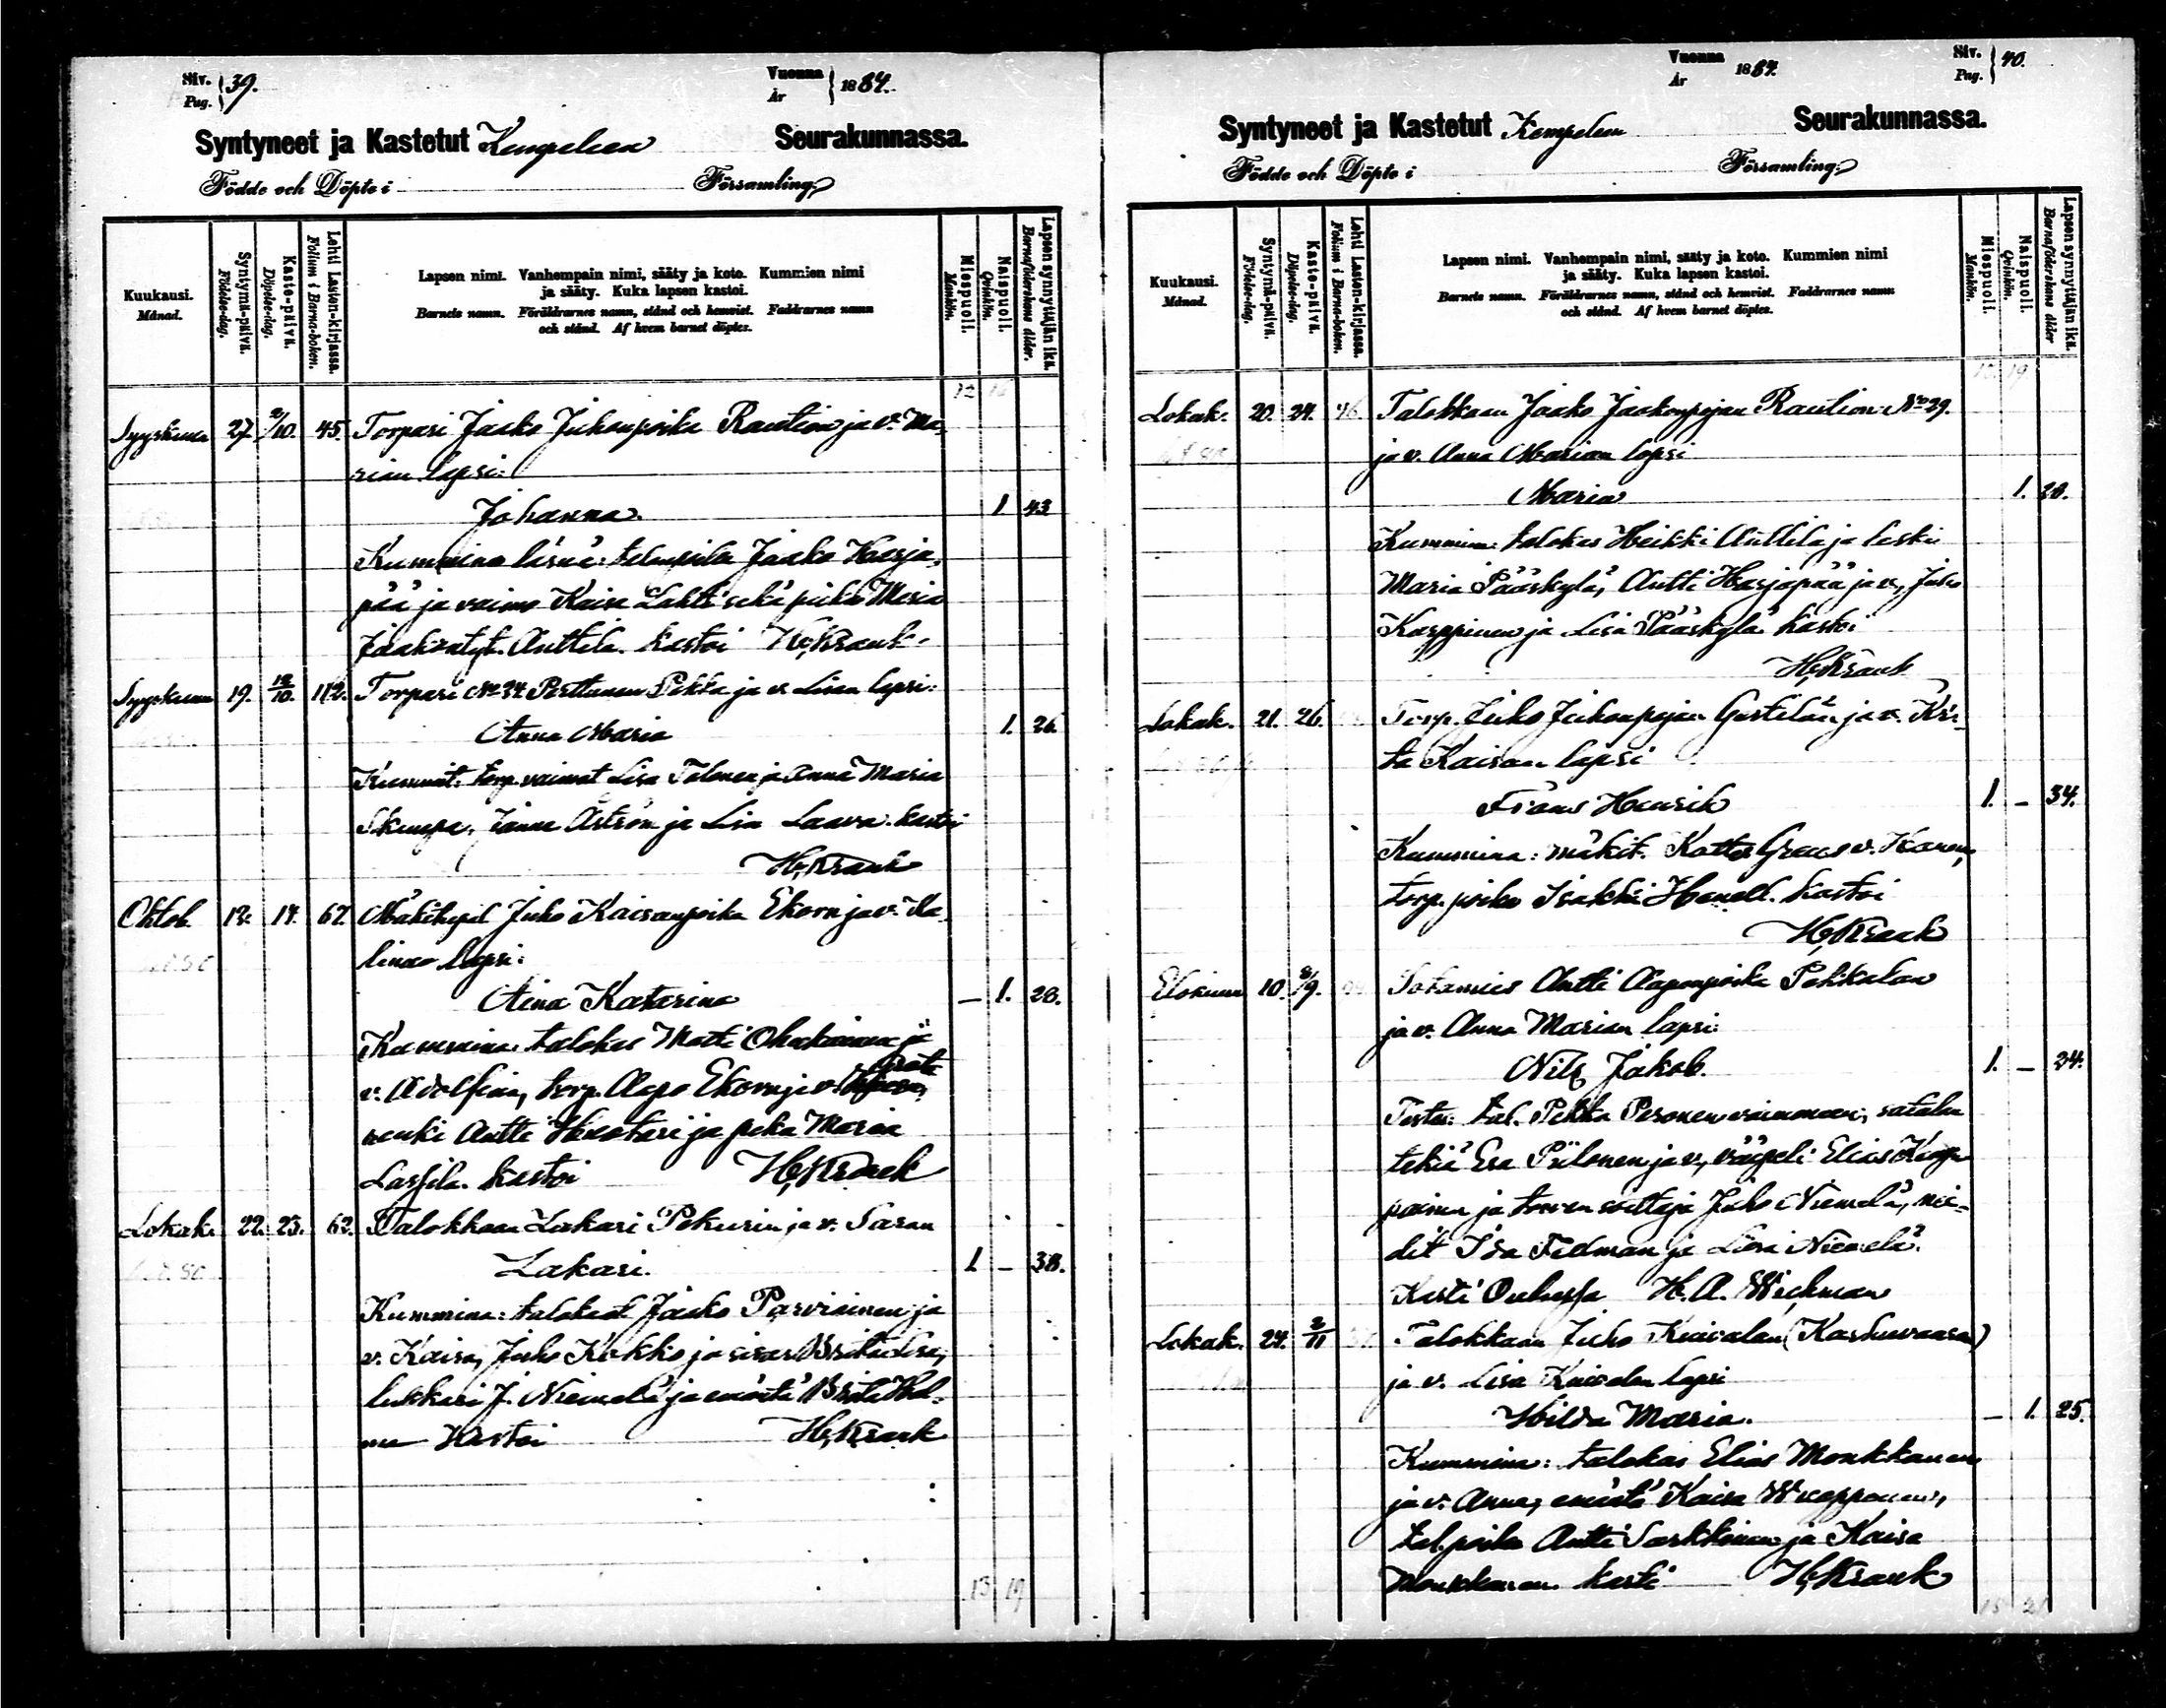 Siv. 39.
Pag.
Vuonna 1884.
År
Syntyneet ja Kastetut Kempeleen Seurakunnassa.
Födde och Döpte i Församling.
Kuukausi.
Månad.
Syntymä-päivä.
Födelse-dag.
Kaste-päivä.
Döpelse-dag.
Lehti Lasten-kirjassa.
Folium i Barna-boken.
Lapsen nimi. Vanhempain nimi, sääty ja koto. Kummien nimi
ja sääty. Kuka lapsen kastoi.
Barnets namn. Föräldrarnes namn, stånd och hemvist. Faddrarnes namn
och stånd. Af hvem barnet döptes.
Miespuoli.
Mankön.
Naispuoli.
Qvinkön.
Lapsen synnyttäjän ikä.
Barnaföderskans ålder.
Syyskuu 27. 2/10. 45. Torpari Jaako Juhonpoika Raution ja v. Ma-
rian lapsi:
Johanna. 1 43
Kummina läsnä: talonpoika Jaako Harja-
pää ja vaimo Kaisa Lahti sekä piika Maria
Jaakontyt. Anttila. kastoi H. Krank.
Syyskuun 19. 12/10. 112. Torpari No 34 Perttunen Pekka ja v. Lisan lapsi:
Anna Maria 1. 26.
Kummit: torp. vaimot Lisa Tolonen ja Anna Maria
Janne Åström ja Lisa Laava. kastoi
H. Krank
Oktob. 13. 14. 67. Mäkitupal. Juho Kaisanpoika Ekorn ja v. Ka-
linan lapsi:
Aina Katarina — 1. 28.
Kummina: talokas Matti ja
v. Adolfiina, torp. Aapo Ekorn ja v.
renki Antti ja piika Maria
Lassila. kastoi H. Krank
Lokak. 22. 25. 62. Talokkaan Zakari Pekurin ja v. Saran
Zakari. 1 — 38.
Kummina: talokad Jaako Parviainen ja
v. Kaisa, Juho Kokko ja sisar Brita Lisa,
lukkari J. Niemelä ja emäntä Brita Hed-
kastoi H. Krank
13 19
Vuonna 1884.
År
Siv. 40.
Pag.
Syntyneet ja Kastetut Kempeleen Seurakunnassa.
Födde och Döpte i Församling.
Kuukausi.
Månad.
Syntymä-päivä.
Födelse-dag.
Kaste-päivä.
Döpelse-dag.
Lehti Lasten-kirjassa.
Folium i Barna-boken.
Lapsen nimi. Vanhempain nimi, sääty ja koto. Kummien nimi
ja sääty. Kuka lapsen kastoi.
Barnets namn. Föräldrarnes namn, stånd och hemvist. Faddrarnes namn
och stånd. Af hvem barnet döptes.
Miespuoli.
Mankön.
Naispuoli.
Qvinkön.
Lapsen synnyttäjän ikä.
Barnaföderskans ålder
Lokak. 20. 24. 46. Talokkaan Jaako Jaakonpojan Raution No 29.
ja v. Anna Marian lapsi
Maria 1. 28.
Kummina: talokas Heikki Anttila ja leski
Maria Pääskylä, Antti Harjapää ja v., Juho
Karppinen ja Lisa Pääskylä kastoi
H. Krank
Lokak. 21. 26. Torp. Juho Juhonpojan Gertilän ja v. Kri-
ta Kaisan lapsi
Frans Henrik 1. — 34.
Kummina: mäkit. v.
torp. poika Isakki Hanell. kastoi
H. Krank
Elokuun 10. /9. Sotamies Antti Aaponpoika Pehkolan
ja v. Anna Marian lapsi:
Nils Jakob. 1. — 34.
Test: tal. Pekka Pesonen vaimoneen, satulan
tekiä Esa Piilonen ja v., vääpeli Elias
ja torven soittaja Juho Niemelä, nei-
dit Ida Fellman ja Liisa Niemelä.
Kasti Oulussa H. A. Wichman
Lokak. 24. 2/11 Talokkaan Juho Kuivalan (Karhuvaaran)
ja v. Lisa Kuivalan lapsi
Hilda Maria. — 1. 25.
Kummina: talokas Elias Monkkanen
ja v. Anna, emäntä Kaisa
tal. poika Antti Sarkkinen ja Kaisa
Monkkanen kasti H. Krank